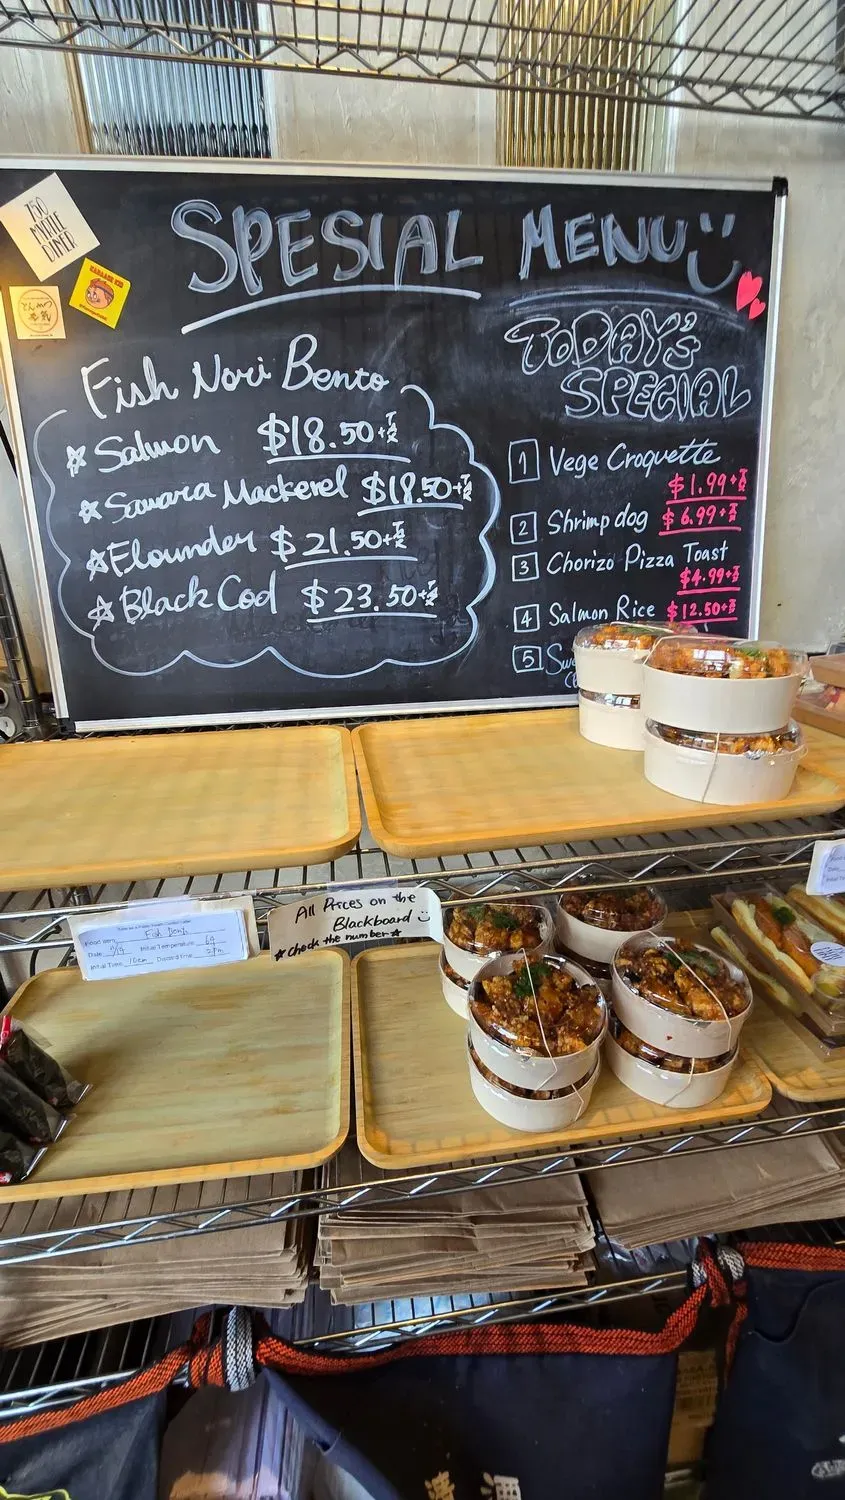 750
MYRTLE
DINER
KARAAGE KID
とんかつ
SPESIAL MENU
TODAY'S
SPECIAL
Fish Nori Bento
Salmon $18.50+TAX
Sawara Mackerel $18.50+TAX
Flounder $21.50+TAX
Black Cod $23.50+TAX
1 Vege Croquette
$1.99+TAX
2 Shrimp dog $6.99+TAX
3 Chorizo Pizza Toast
$4.99+TAX
4 Salmon Rice $12.50+TAX
5
Fish Bento
Date 11/19 Initial Temperature 69
Initial Time 10am Discard Time 2pm
All Prices on the
Blackboard
★ check the number ★